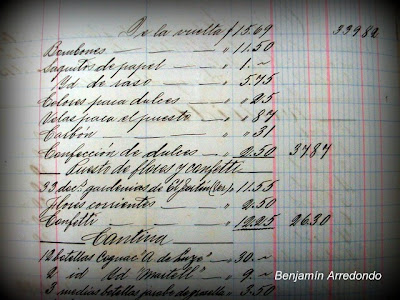 De la vuelta $15.69 339 82
Bombones — " 11.50
Saquitos de papel — " 1.~
" Id de raso — " 5.75
Colores para dulces — " " 25
Velas para el puesto — " " 87
Carbón — " " 31
Confección de dulces — " 2.50 37.87
Puesto de flores y confetti
33 decs gardenias de "El Jardin" " 11.55
Flores corrientes — " 2.50
Confetti — 12.25 26.30
Cantina
12 botellas Cognac "A de Luze" — 30.~
2 id Id "Martell" — " 9.~
3 medias botellas jarabe de grosella " 3.50
Benjamín Arredondo